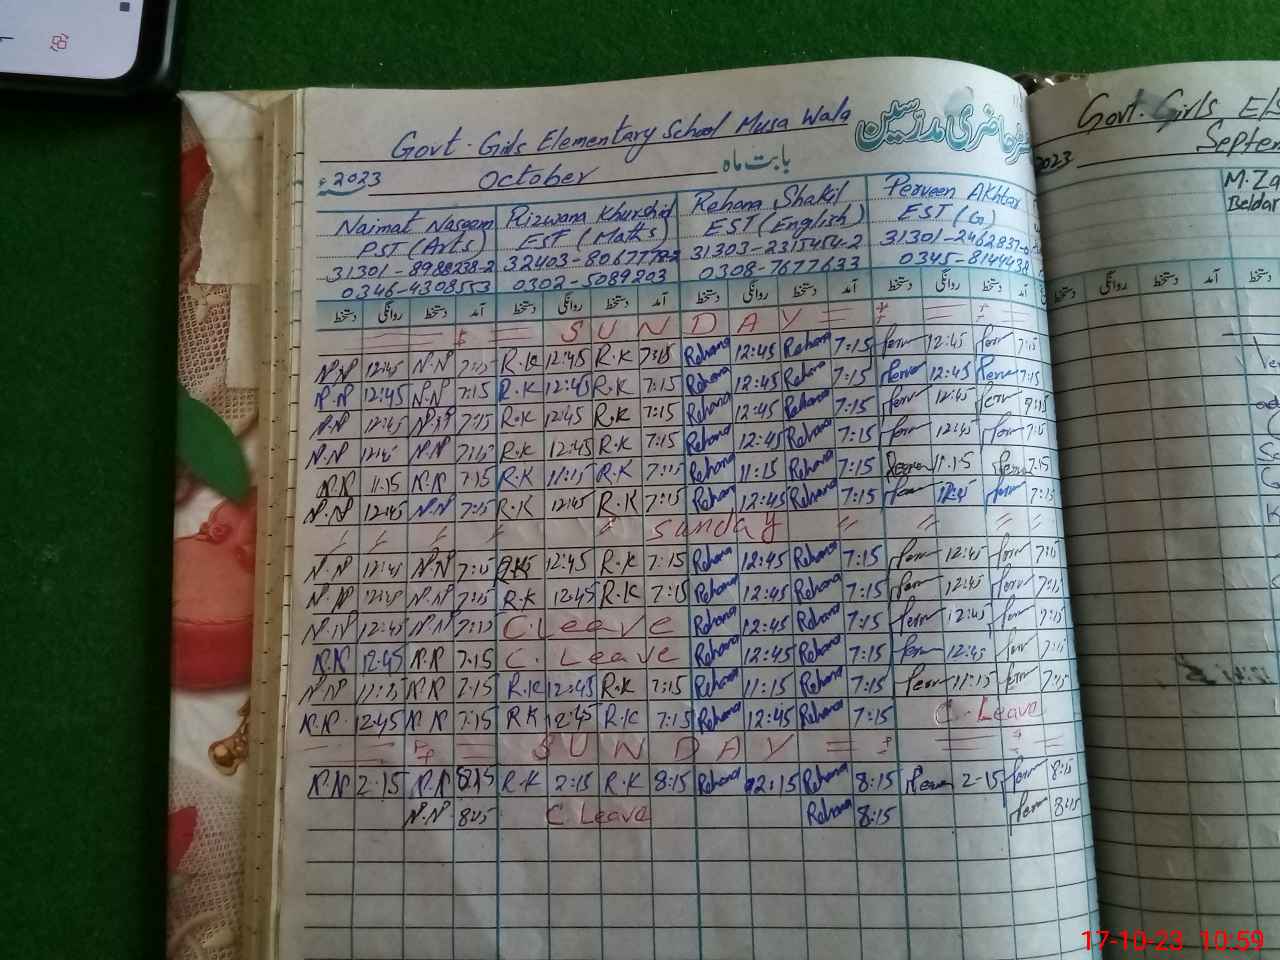 Govt. Girls Elementary School Musa Wala
بابت ماہ
October
2023
Naimat Naseem
PST (Arts)
31301-8988238-2
0346-4308553
Rizwana Khurshid
EST (Maths)
0302-5089203
Rehana Shakil
EST (English)
31303-2315454-2
0308-7677633
Perveen Akhtar
EST (G)
0345-8144438
دستخط روانگی دستخط آمد دستخط روانگی دستخط آمد دستخط روانگی دستخط آمد دستخط روانگی دستخط آمد
= = = SUNDAY = =
N.N 12:45 N.N 7:15 R.K 12:45 R.K 7:15 Rehana 12:45 Rehana 7:15 Perv 12:45 Perv 7:15
N.N 12:45 N.N 7:15 R.K 12:45 R.K 7:15 Rehana 12:45 Rehana 7:15 Perv 12:45 Perv 7:15
N.N 12:45 N.N 7:15 R.K 12:45 R.K 7:15 Rehana 12:45 Rehana 7:15 Perv 12:45 Perv 7:15
N.N 12:45 N.N 7:15 R.K 12:45 R.K 7:15 Rehana 12:45 Rehana 7:15 Perv 12:45 Perv 7:15
N.N 11:15 N.N 7:15 R.K 11:15 R.K 7:15 Rehana 11:15 Rehana 7:15 11:15 7:15
N.N 12:45 N.N 7:15 R.K 12:45 R.K 7:15 Rehana 12:45 Rehana 7:15 Perv 12:45 Perv 7:15
Sunday
N.N 12:45 N.N 7:15 12:45 R.K 7:15 Rehana 12:45 Rehana 7:15 Perv 12:45 Perv 7:15
N.N 12:45 N.N 7:15 R.K 12:45 R.K 7:15 Rehana 12:45 Rehana 7:15 Perv 12:45 Perv 7:15
N.N 12:45 N.N 7:15 C.Leave Rehana 12:45 Rehana 7:15 Perv 12:45 Perv 7:15
N.N 12:45 N.N 7:15 C. Leave Rehana 12:45 Rehana 7:15 Perv 12:45 Perv 7:15
N.N 11:15 N.N 7:15 R.K 12:45 R.K 7:15 Rehana 11:15 Rehana 7:15 Perv 11:15 Perv 7:15
N.N 12:45 N.N 7:15 R.K 12:45 R.K 7:15 Rehana 12:45 Rehana 7:15 C.Leave
= = SUNDAY = = =
N.N 2:15 N.N 8:15 R.K 2:15 R.K 8:15 Rehana 2:15 Rehana 8:15 2-15 Perv 8:15
N.N 8:15 C.Leave Rehana 8:15 Perv 8:15
Govt. Girls
2023
M.Za
Beldar
دستخط روانگی دستخط آمد دستخط
17-10-23 10:59